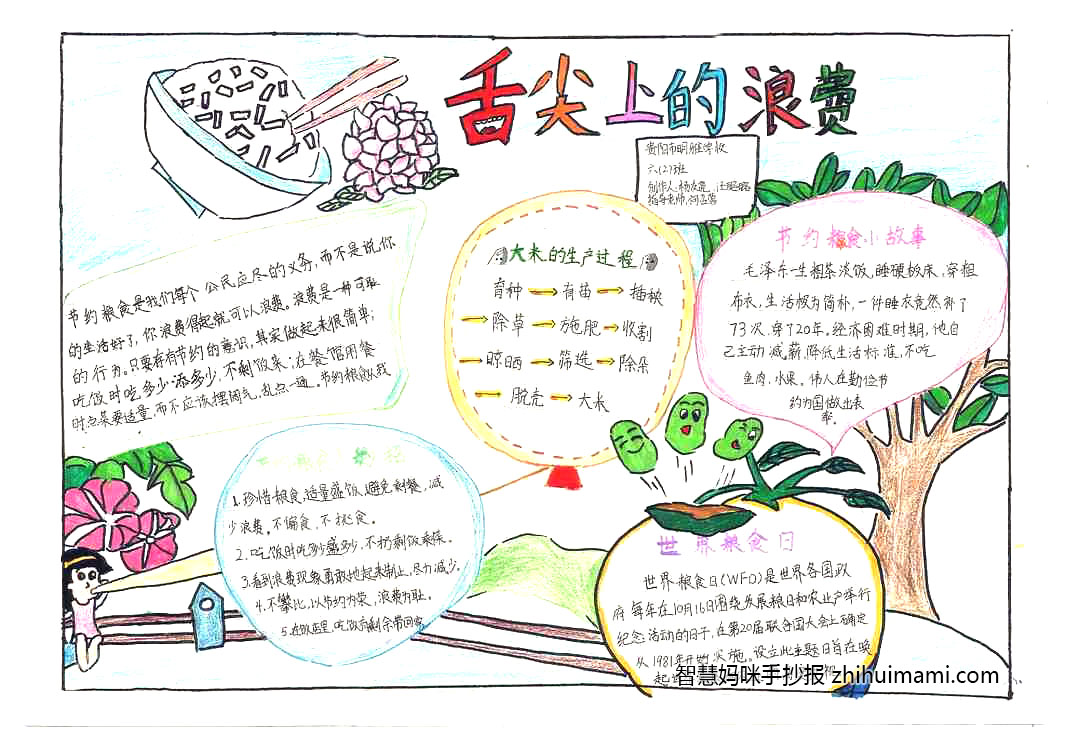 舌尖上的浪费
贵阳市明雅学校
六(2)班
制作人:杨
指导老师:何
节约粮食是我们每个公民应尽的义务,而不是说,你
的生活好了,你浪费得起就可以浪费。浪费是一种可耻
的行为。只要存有节约的意识,其实做起来很简单;
吃饭时吃多少添多少,不剩饭菜;在餐馆用餐
时点菜要适量,而不应该摆阔气,乱点一通。节约粮食从我
大米的生产过程
育种→育苗→插秧
→除草→施肥→收割
→晾晒→筛选→除杂
→脱壳→大米
节约粮食小故事
毛泽东一生粗茶淡饭,睡硬板床,穿粗
布衣,生活极为简朴,一件睡衣竟然补了
73次,穿了20年。经济困难时期,他自
己主动减薪,降低生活标准,不吃
鱼肉,水果。伟人在勤俭节
约为国做出表
率。
1.珍惜粮食,适量盛饭,避免剩餐,减
少浪费。不偏食,不挑食。
2.吃饭时吃多少盛多少,不扔剩饭剩菜。
3.看到浪费现象勇敢地起来制止,尽力减少。
4.不攀比,以节约为荣,浪费为耻。
5.在饭店里,吃饭有剩余带回家
世界粮食日
世界粮食日(WFD)是世界各国政
府每年在10月16日围绕发展粮食和农业举行
纪念活动的日子,在第20届联合国大会上确定
从1981年开始实施。设立此主题日旨在唤
起
智慧妈咪手抄报 zhihuimami.com